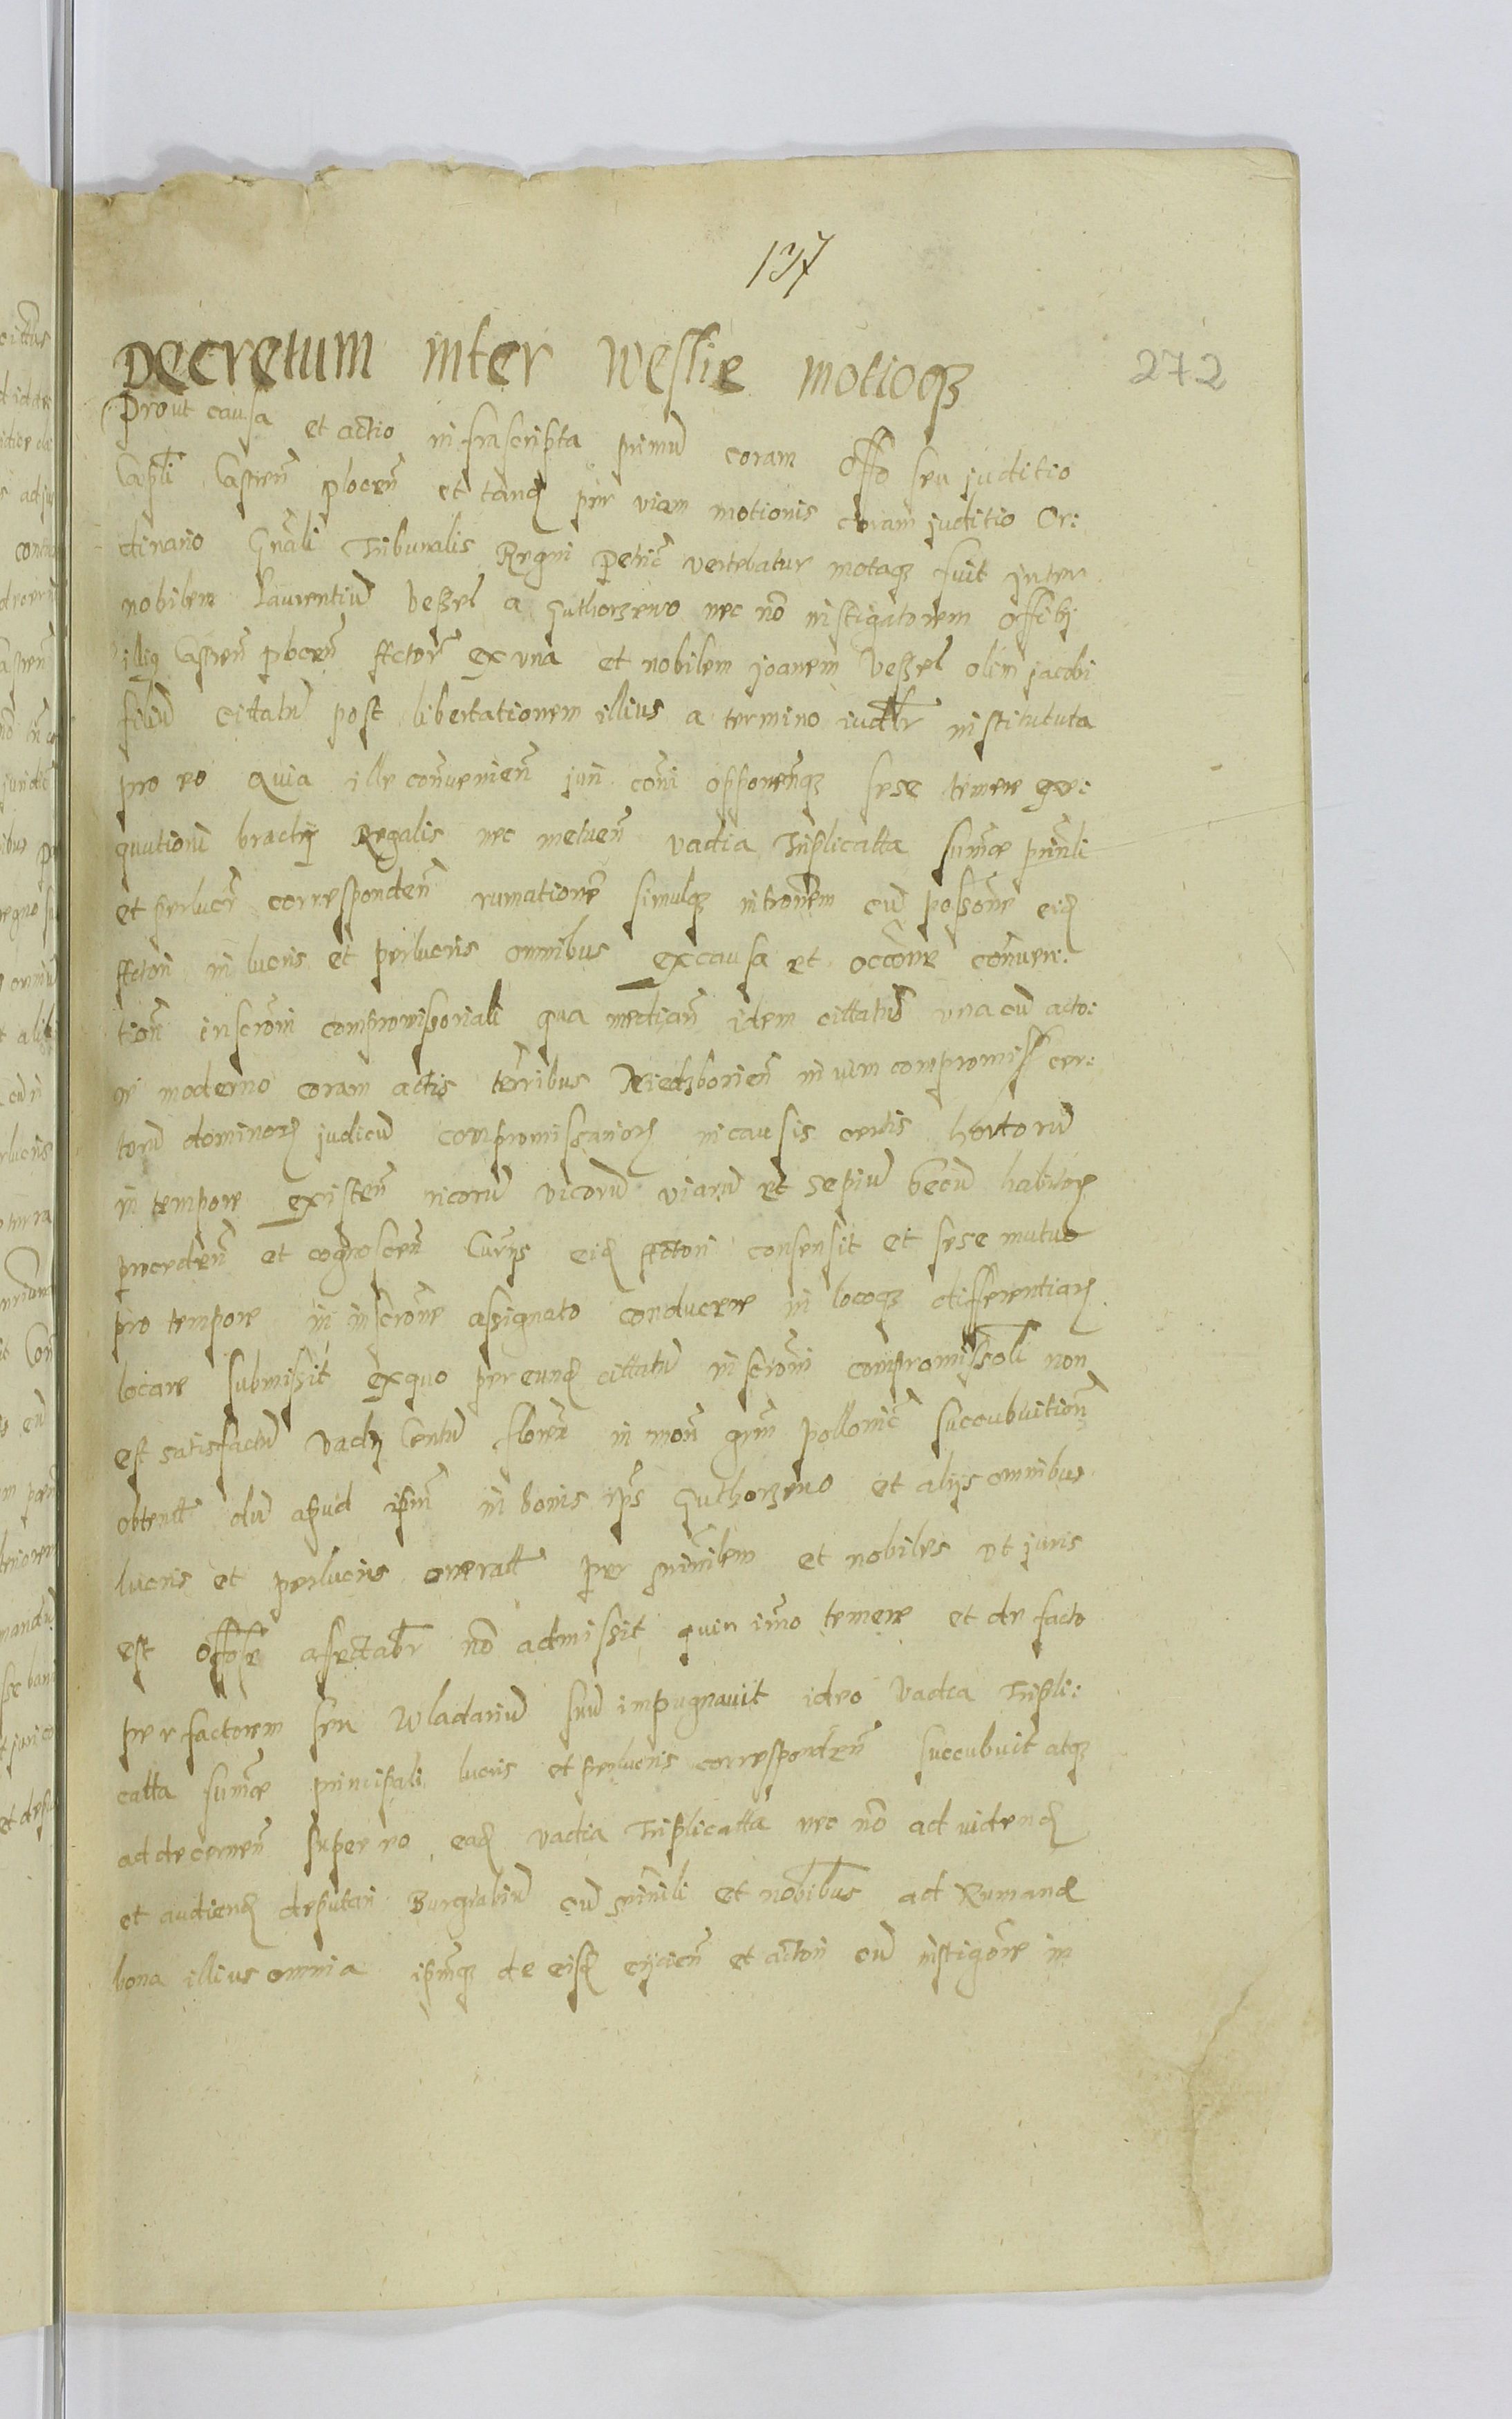 137
272
Decretum inter Wessie motioq3
Prout causa et actio infrascripta primu coram offo seu juditio
Capli Castren plocen et tanq per viam motionis coram juditio Or:
dinario Gnali Tribunalis Regni Petric vertebatur motaq3 fuit inter
nobilem Laurentiu Vessel a Guthorzewo nec no instigatorem officij
illiq Castren plocen Actor ex una et nobilem joanem Vessel olim jacobi
filiu cittatu post libertationem illius a termino iudlr instituta
pro eo quia ille convenien juri coni opponenq3 sese temere exe:
quutioni brachij Regalis nec metuen vadia Triplicatta sumæ prinli
et perlucr corresponden rumatione simulq3 introem cu possone eid
Actori in lucris et perlucris omnibus ex causa et occone conven:
tion inscroni compromissoriali qua median idem cittatus una cu acto:
re moderno coram actis teribus Niedzborien in vim compromiss cer:
toru dominor judicu compromissarior in causis certis hortoru
in tempore existen ricoru vicoru viaru et sepiu secu habitor
proceden et cognoscen Curijs eid Actori consensit et sese mutuo
pro tempore in inscrone assignato conducere in locoq3 differentiar
locare submisit exquo per eund cittatu inscroni compromissoli non
est satisfactu vadij Centu floren in mon grm pollonic succubuition
obtentt du apud ipm in bonis ips Guthorzewo et alijs omnibus
lucris et perlucris oneratt per minilem et nobiles ut juris
est offose afectabr no admissit quin imo temere et de facto
per factorem seu Wladariu suu impugnavit ideo vadia Tripli:
catta sumæ principali lucris et perlucris corresponden succubuit atq3
ad decernen super eo ead vadia Triplicatta nec no ad videnq
et audienq deputari Burgrabiu cu minili et nobibus ad Rumand
bona illius omnia ipmq3 de eisd eijcien et actori cu instigore in